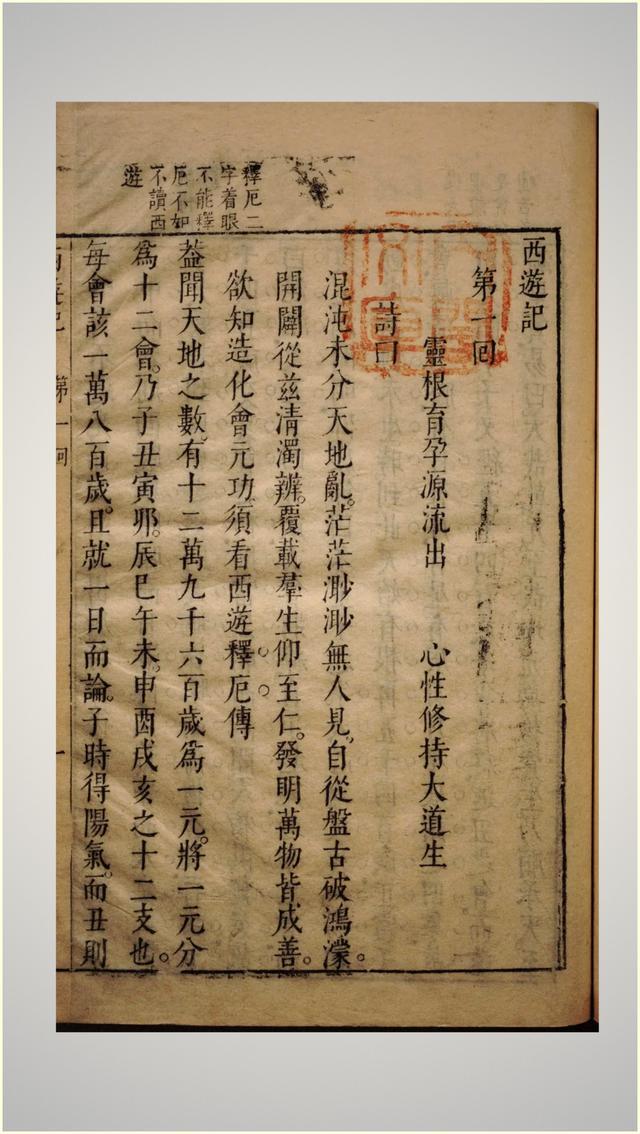 釋厄二
字着眼
不能釋
厄不如
不讀西
遊
西遊記
第一回
靈根育孕源流出　心性修持大道生
詩曰
混沌未分天地亂。茫茫渺渺無人見。自從盤古破鴻濛。
開闢從兹清濁辨。覆載羣生仰至仁。發明萬物皆成善。
欲知造化會元功須看西遊釋厄傳
葢聞天地之數。有十二萬九千六百歲爲一元。將一元分
爲十二會。乃子丑寅夘。辰巳午未。申酉戌亥之十二支也。
每會該一萬八百歲。且就一日而論。子時得陽氣。而丑則
西遊記　第一回　一